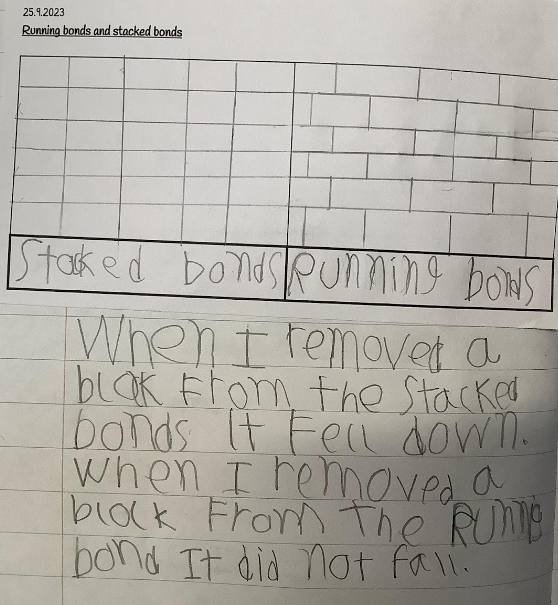 25.9.2023
Running bonds and stacked bonds
Stacked bonds Running bonds
When I removed a
block from the stacked
bonds It fell down.
When I removed a
block from the Running
bond It did not fall.